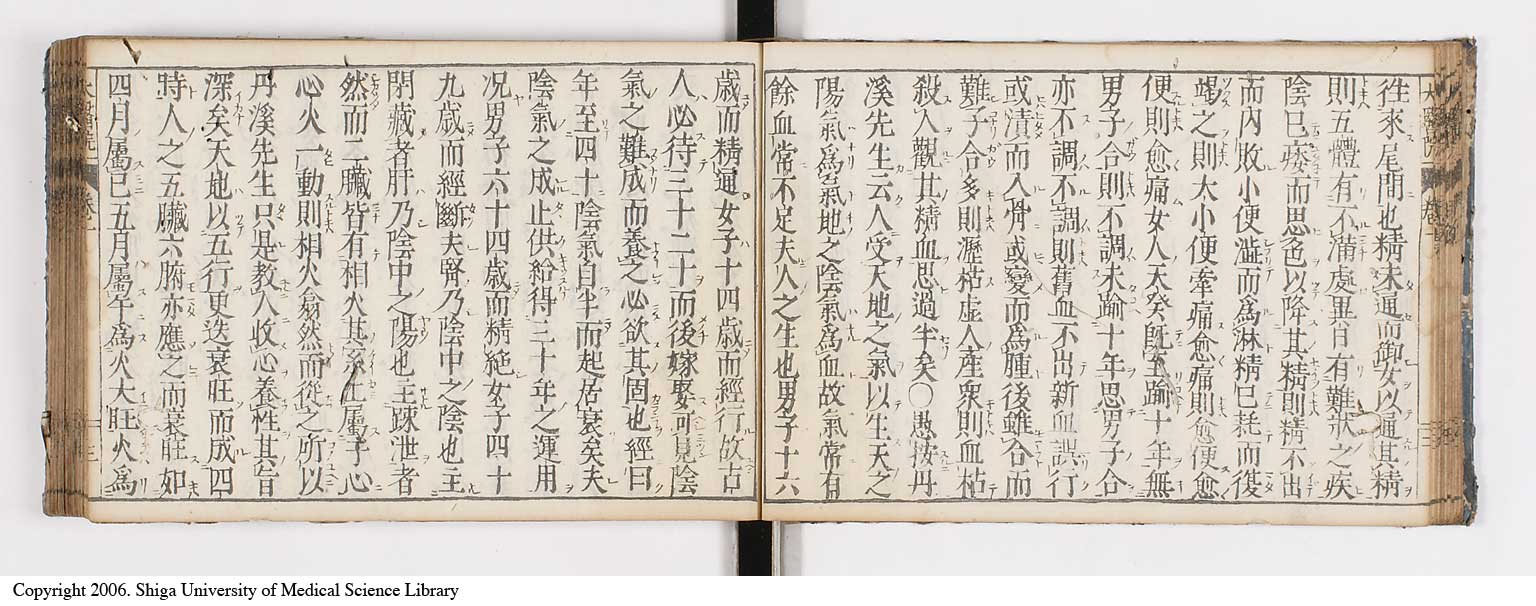 徃來尾閭也精未通而御女以通其精
則五體有不滿處異日有難狀之疾
陰已痿而思色以降其精則精不出
而内敗小便澁而爲淋精已耗而復
竭之則大小便牽痛愈痛則愈便愈
便則愈痛女人天癸既至踰十年無
男子合則不調未踰十年思男子合
亦不調不調則舊血不出新血誤行
或漬而入骨或變而爲腫後雖合而
難子合多則瀝枯虚人産衆則血枯
殺人觀其精血思過半矣〇愚按丹
溪先生云人受天地之氣以生天之
陽氣爲氣地之陰氣爲血故氣常有
餘血常不足夫人之生也男子十六
歳而精通女子十四歳而經行故古
人必待三十二十而後嫁娶可見陰
氣之難成而養之必欲其固也經曰
年至四十陰氣自半而起居衰矣夫
陰氣之成止供給得三十年之運用
况男子六十四歳而精絶女子四十
九歳而經斷夫腎乃陰中之陰也主
閉藏者肝乃陰中之陽也主疎泄者
然而二臟皆有相火其系上屬于心
心火一動則相火翕然而從之所以
丹溪先生只是教人收心養性其旨
深矣天地以五行更迭衰旺而成四
時人之五臟六腑亦應之而衰旺如
四月屬巳五月屬午爲火大旺火爲
Copyright 2006. Shiga University of Medical Science Library